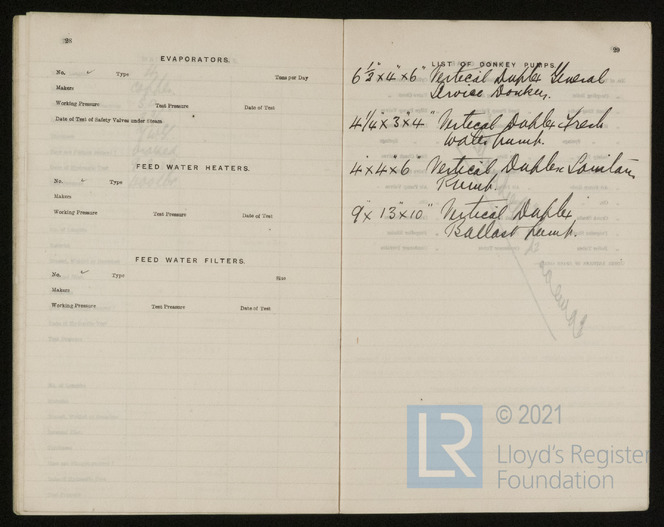 28
EVAPORATORS.
No. Type Tons per Day
Makers
Working Pressure Test Pressure Date of Test
Date of Test of Safety Valves under Steam
FEED WATER HEATERS.
No. Type
Makers
Working Pressure Test Pressure Date of Test
FEED WATER FILTERS.
No. Type Size
Makers
Working Pressure Test Pressure Date of Test
29
LIST OF DONKEY PUMPS.
6 ½" x 4" x 6" Vertical Duplex General
Service Donkey.
4 1/4" x 3" x 4" Vertical Duplex Fresh
Water pump.
4" x 4" x 6" Vertical Duplex Sanitary
Pump.
9" x 13" x 10" Vertical Duplex
Ballast pump.
© 2021
LR
Lloyd's Register
Foundation